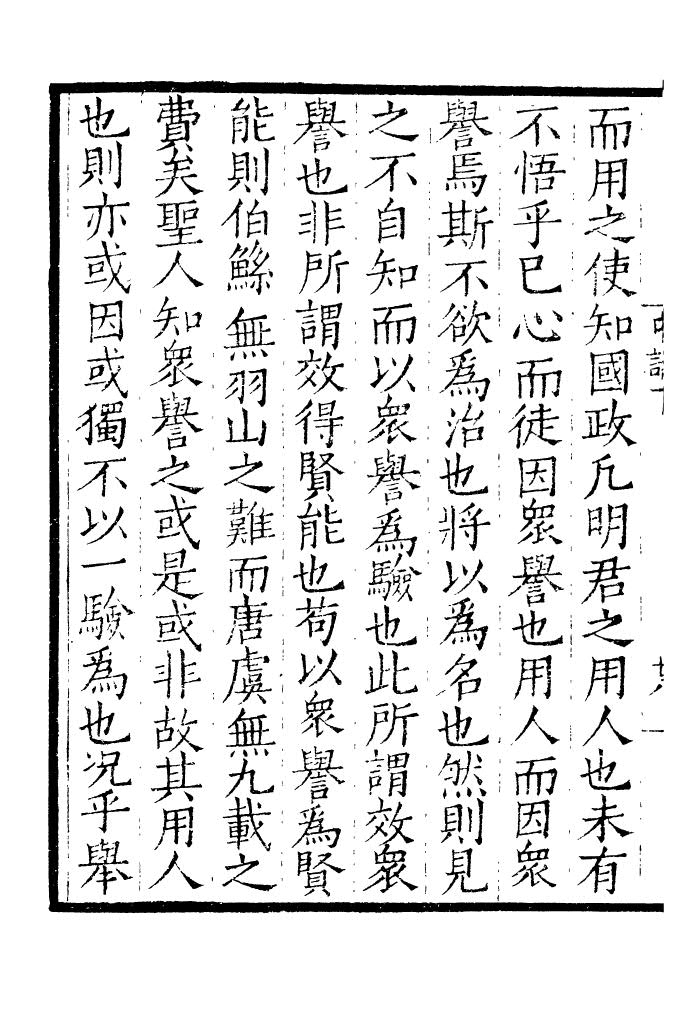 而用之使知國政凡明君之用人也未有
不悟乎已心而徒因衆譽也用人而因衆
譽焉斯不欲爲治也將以爲名也然則見
之不自知而以衆譽爲驗也此所謂效衆
譽也非所謂效得賢能也苟以衆譽爲賢
能則伯鯀無羽山之難而唐虞無九載之
費矣聖人知衆譽之或是或非故其用人
也則亦或因或獨不以一驗爲也况乎舉